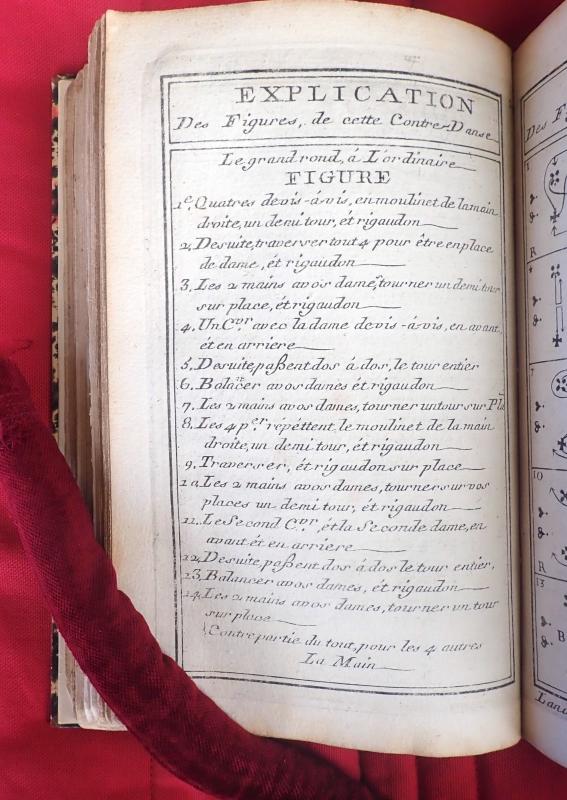 EXPLICATION
Des Figures, de cette Contre-Danse
Le grand rond, á L'ordinaire
FIGURE
1e. Quatres de vis-á-vis, en moulinet de la main
droite, un demi tour, ét rigaudon
2. De suite, traverser tout 4 pour être en place
de dame, ét rigaudon
3. Les 2 mains avos dames, tourner un demi tour
sur place, ét rigaudon
4. Un Cvr avec la dame de vis-á-vis, en avant
ét en arriere
5. De suite, paßent dos á dos, le tour entier
6. Balacer avos dames ét rigaudon
7. Les 2 mains avos dames, tourner un tour sur Pla
8. Les 4 per repéttent, le moulinet de la main
droite, un demi tour, ét rigaudon
9. Traverser, ét rigaudon sur place
10. Les 2 mains avos dames, tourner sur vos
places un demi tour, ét rigaudon
11. Le Second Cvr, ét la Seconde dame, en
avant ét en arriere
12. De suite, paßent dos á dos le tour entier,
13. Balancer avos dames, ét rigaudon
14. Les 2 mains avos dames, tourner un tour
sur place
Contre partie du tout, pour les 4 autres
La Main
Des Fi
1
R
4
7
10
R
13
B